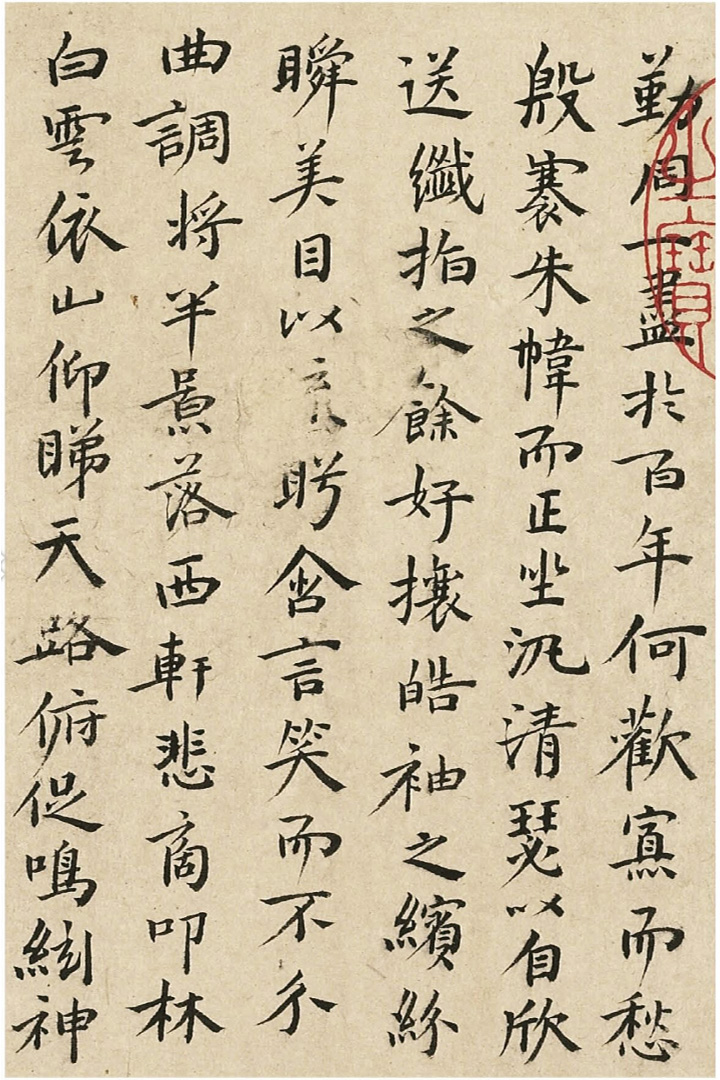 勤同一盡於百年何歡寡而愁
殷褰朱幃而正坐汎清瑟以自欣
送纖指之餘好攘皓袖之繽紛
瞬美目以流眄含言笑而不分
曲調将半景落西軒悲商叩林
白雲依山仰睇天路俯促鳴絃神